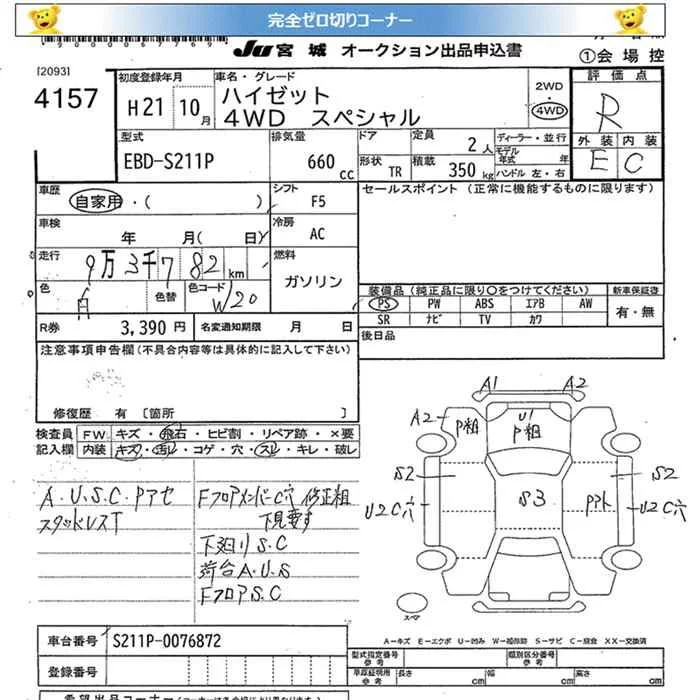 完全ゼロ切りコーナー
JU 宮城 オークション出品申込書
①会場控
[2093]
4157
初度登録年月
H21 10月
車名・グレード
ハイゼット
4WD スペシャル
2WD
・
4WD
評価点
R
外装 内装
E C
型式
EBD-S211P
排気量
660 cc
ドア
形状
TR
定員
2 人
積載
350 kg
ディーラー・並行
モデル年式 年
ハンドル 左・右
車歴
自家用・( )
シフト
F5
車検
年 月( 日)
冷房
AC
走行
9万3千782 km
燃料
ガソリン
色
白
色替
色コード
W20
R券 3,390 円
名変通知期限 月 日
セールスポイント (正常に機能するものに限ります)
装備品(純正品に限り○をつけてください)
PS PW ABS エアB AW
SR ナビ TV カワ
新車保証書
有・無
後日品
注意事項申告欄(不具合内容等は具体的に記入して下さい)
修復歴 有 [箇所 ]
検査員記入欄
FW キズ・飛石・ヒビ割・リペア跡・×要
内装 キズ・汚レ・コゲ・穴・スレ・キレ・破レ
A・U・S・C・Pアセ
スタッドレスT
Fフロアメンバー C穴 修正粗
下見要す
下廻り S.C
荷台 A.U.S
Fフロア S.C
A1 A2
A2 P粗 U1 P粗
S2 S2
U2 C穴 S3 Pアト U2 C穴
スペア
A-キズ E-エクボ U-凹み W-補修跡 S-サビ C-腐食 XX-交換済
車台番号 S211P-0076872
登録番号
型式指定番号 参考
類別区分番号 参考
長さ cm 幅 cm 高さ cm